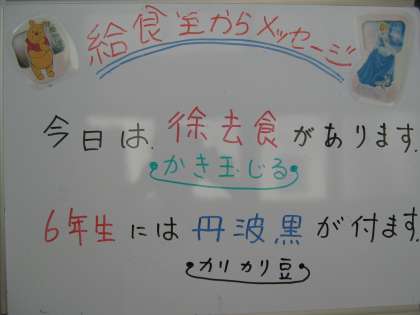 給食室からメッセージ
今日は、徐去食があります。
かき玉じる
6年生には丹波黒が付ます。
カリカリ豆